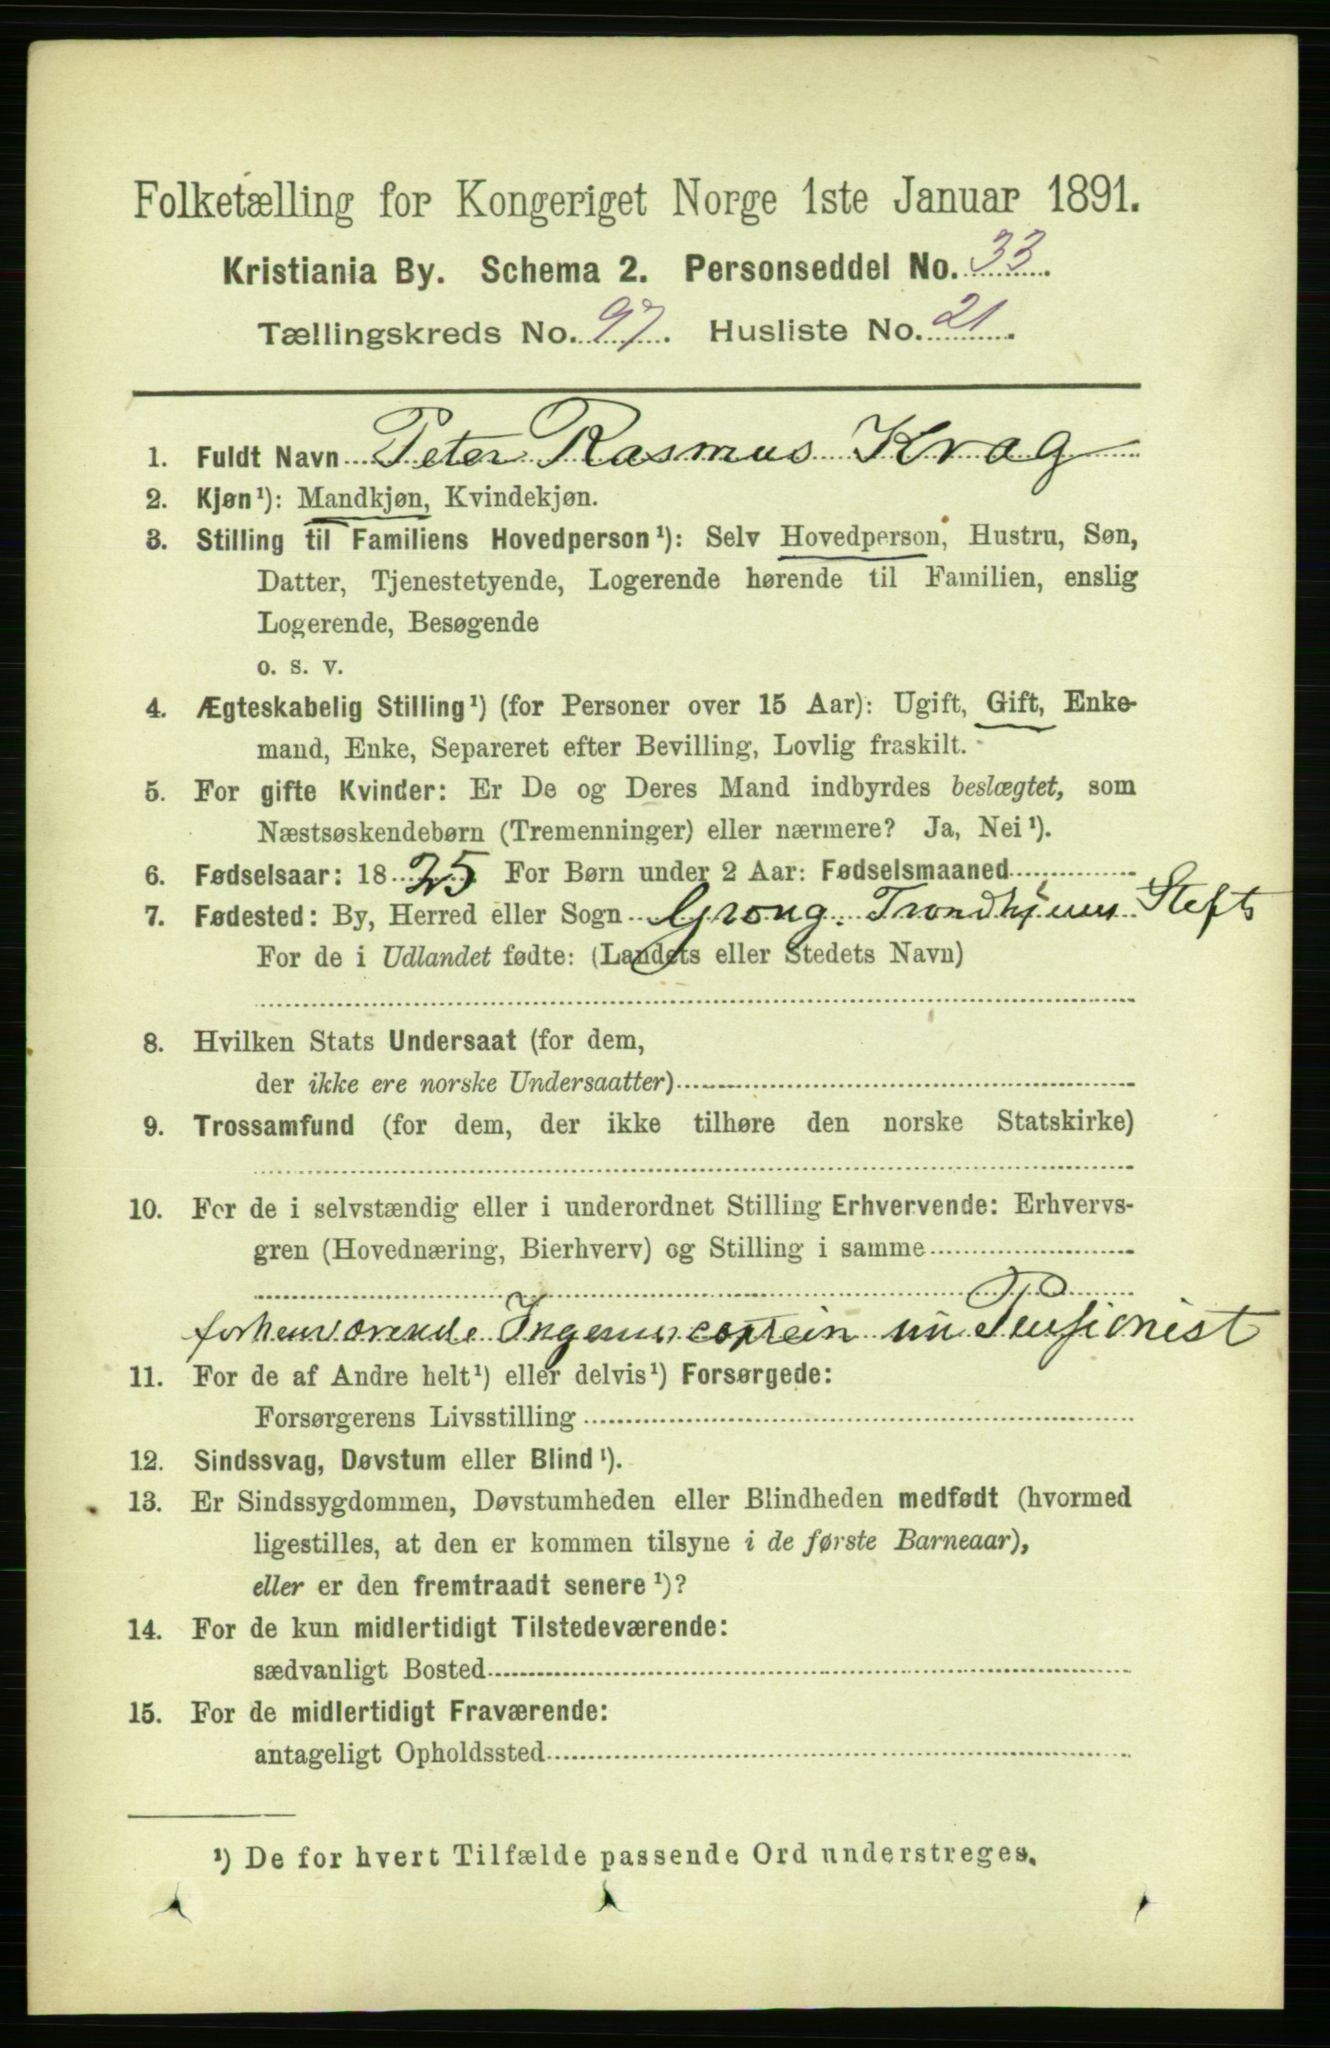 Folketælling for Kongeriget Norge 1ste Januar 1891.
Kristiania By. Schema 2. Personseddel No. 33.
Tællingskreds No. 97. Husliste No. 21.
1. Fuldt Navn Peter Rasmus Krag
2. Kjøn¹): Mandkjøn, Kvindekjøn.
3. Stilling til Familiens Hovedperson¹): Selv Hovedperson, Hustru, Søn,
Datter, Tjenestetyende, Logerende hørende til Familien, enslig
Logerende, Besøgende
o. s. v.
4. Ægteskabelig Stilling¹) (for Personer over 15 Aar): Ugift, Gift, Enke-
mand, Enke, Separeret efter Bevilling, Lovlig fraskilt.
5. For gifte Kvinder: Er De og Deres Mand indbyrdes beslægtet, som
Næstsøskendebørn (Tremenninger) eller nærmere? Ja, Nei¹).
6. Fødselsaar: 1825. For Børn under 2 Aar: Fødselsmaaned
7. Fødested: By, Herred eller Sogn Grong. Trondhjems Stift
For de i Udlandet fødte: (Landets eller Stedets Navn)
8. Hvilken Stats Undersaat (for dem,
der ikke ere norske Undersaatter)
9. Trossamfund (for dem, der ikke tilhøre den norske Statskirke)
10. For de i selvstændig eller i underordnet Stilling Erhvervende: Erhvervs-
gren (Hovednæring, Bierhverv) og Stilling i samme
forhenværende Ingenieurcaptein nu Pensionist
11. For de af Andre helt¹) eller delvis¹) Forsørgede:
Forsørgerens Livsstilling
12. Sindssvag, Døvstum eller Blind¹).
13. Er Sindssygdommen, Døvstumheden eller Blindheden medfødt (hvormed
ligestilles, at den er kommen tilsyne i de første Barneaar),
eller er den fremtraadt senere¹)?
14. For de kun midlertidigt Tilstedeværende:
sædvanligt Bosted
15. For de midlertidigt Fraværende:
antageligt Opholdssted
¹) De for hvert Tilfælde passende Ord understreges.